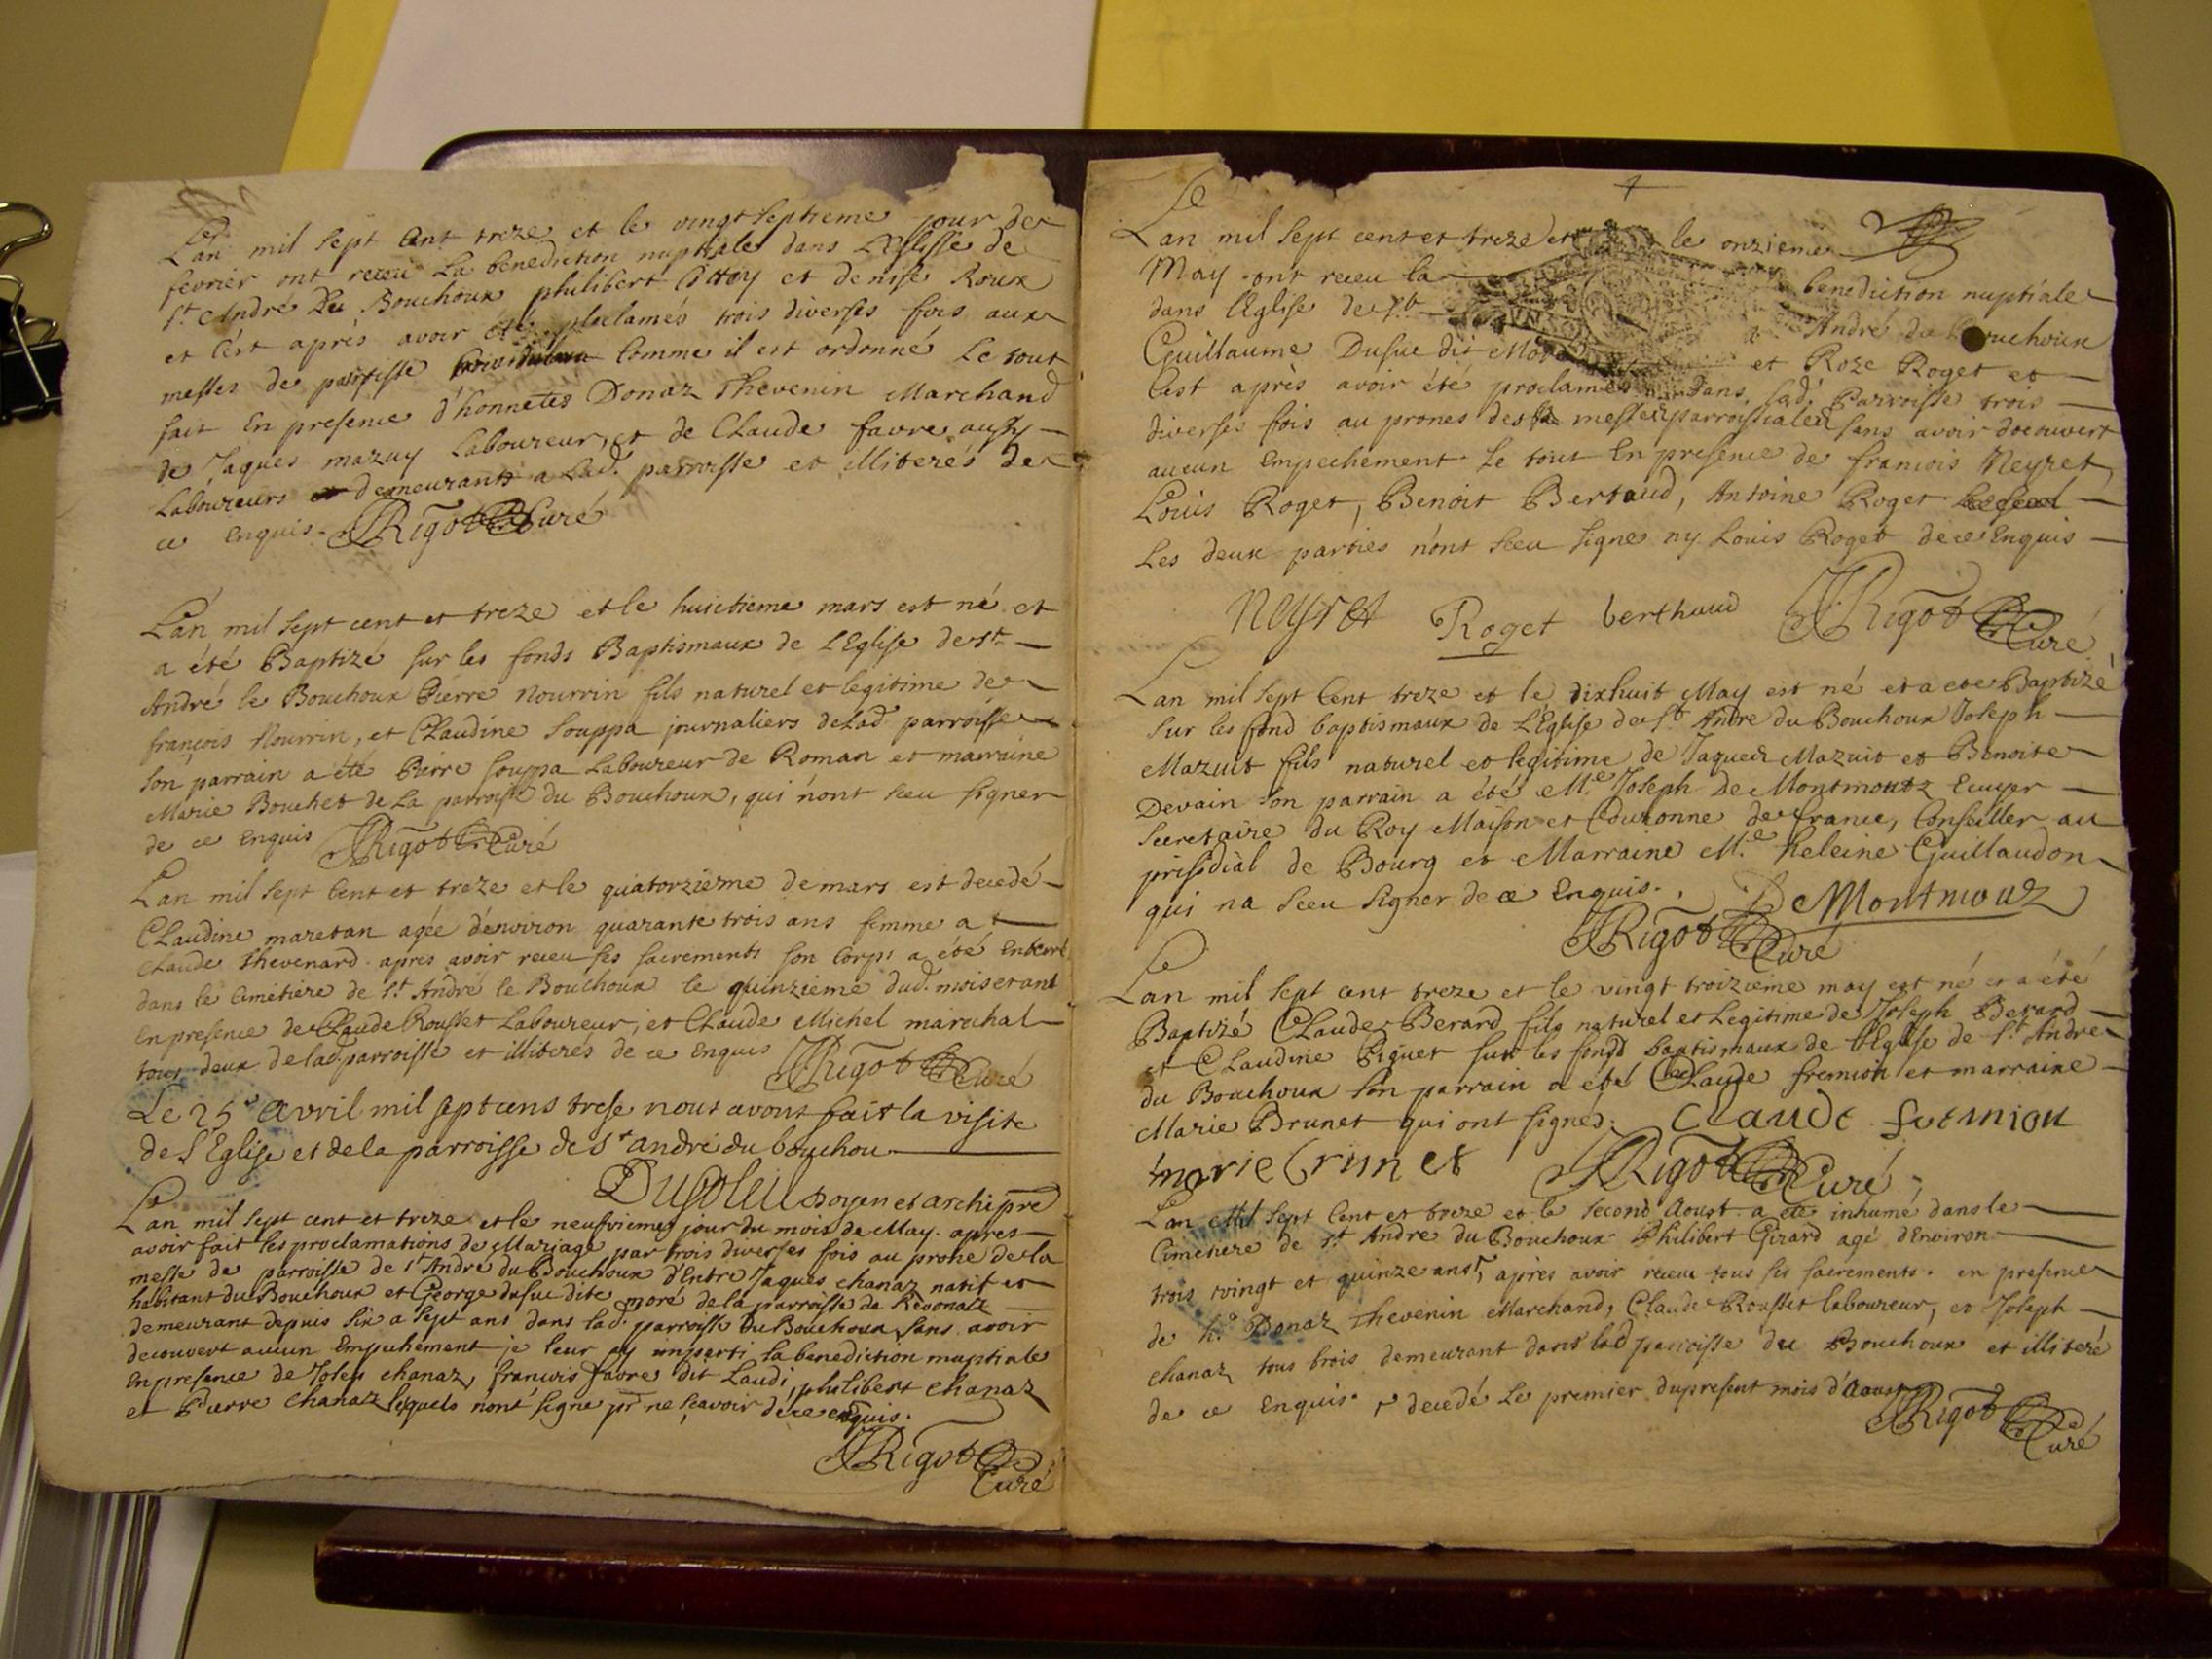 L'an mil sept Cent treze et le vingt septieme jour de
fevrier ont receu La benediction nuptiale dans L'Eglisse de
St. André Du Bouchoux philibert et denise Roux
et C'ést après avoir été ploclamés trois diverses fois aux
messes de paroisse Comme il est ordonné Le tout
fait En presence d'honnetes Donaz Thevenin Marchand
de Jaques mazuy Laboureur, et de Claude favre aussy
Laboureurs demeurants a Lad. parroisse et illiterés de
ce Enquis. JRigot Curé
L'an mil sept cent et treze et le huictieme mars est né et
a été Baptizé sur les fonds Baptismaux de L'Eglise de st.
André le Bouchoux Pierre Nourrin fils naturel et legitime de
françois Nourrin, et Claudine Souppa journaliers de Lad. parroisse
son parrain a été Pierre souppa Laboureur de Roman et marraine
Marie Bouchet de La parroisse du Bouchoux, qui n'ont sceu signer
de ce Enquis JRigot Curé
L'an mil sept Cent et treze et le quatorzieme de mars est decedé
Claudine maretan agée d'environ quarante trois ans femme a
Claude Thevenard après avoir receu ses sacrements son Corps a été Enterré
dans le Cimétière de St. André le Bouchoux le quinzieme dud. mois et ans
En presence de Claude Rousset Laboureur, et Claude Michel maréchal
tous deux de lad. parroisse et illiterés de ce Enquis JRigot Curé
Le 25e avril mil sept cens trese nous avons fait la visite
de l'Eglise et de la parroisse de St andré du bouchou
doyen et archipre
L'an mil sept cent et treze et le neufvieme jour du mois de May. apres
avoir fait les proclamations de Mariage par trois diverses fois au prone de la
messe de parroisse de St André du Bouchoux d'Entre Jaques chanaz natif et
habitant du Bouchoux et George dusuc dite moré de la parroisse de Revonaz
demeurant depuis six a sept ans dans lad. parroisse du Bouchoux sans avoir
decouvert aucun Empechement je leur ay imparti la benediction nuptiale
En presence de Joseph chanaz, francois favre dit Laudi, philibert chanaz
et Pierre chanaz lesquels n'ont signe pr ne sçavoir de ce enquis.
JRigot
Curé
L'an mil sept cent et treze et le onzieme
May ont receu la benediction nuptiale
dans l'Eglise de St. André du Bouchoux
Guillaume Dusuc dit Moré et Roze Roget et
C'est après avoir été proclamés dans lad. Parroisse trois
diverses fois au prones des messes parroissiales sans avoir decouvert
aucun Empechement Le tout En presence de francois Neyret
Louis Roget, Benoit Bertaud, Antoine Roget
Les deux parties n'ont sceu signe ny Louis Roget de ce Enquis
Neyret Roget berthaud JRigot
Curé
L'an mil sept Cent treze et le dixhuit May est né et a ete Baptizé
sur les fond baptismaux de L'Eglise de St. André du Bouchoux Joseph
Mazuit fils naturel et legitime de Jaques Mazuit et Benoite
Devain son parrain a été Mre Joseph de Montmoutz Ecuyer
Secretaire du Roy Maison et Couronne de france, Conseiller au
prisidial de Bourg et Marraine Mlle heleine Guillaudon
qui na sceu signer de ce Enquis. De Montmouz
JRigot Curé
L'an mil sept cent treze et le vingt troizieme may est né et a été
Baptizé Claude Berard fils naturel et Legitime de Joseph Berard
et Claudine Piguet sur les fonds baptismaux de l'Eglise de St. André
du Bouchoux son parrain a été Claude fremion et marraine
Marie Brunet qui ont signes. Claude fremion
marie brunet JRigot Curé
L'an Mil sept Cent et treze et le second Aoust a été inhumé dans le
Cimetiere de St. André du Bouchoux Philibert Girard agé d'Environ
trois vingt et quinze ans, après avoir receu tous ses sacrements. en presence
de h. Donaz Thevenin Marchand, Claude Rousset laboureur, et Joseph
chanaz tous trois demeurant dans lad. parroisse du Bouchoux et illiteré
de ce Enquis. decedé Le premier du present mois d'Aoust
JRigot
Curé